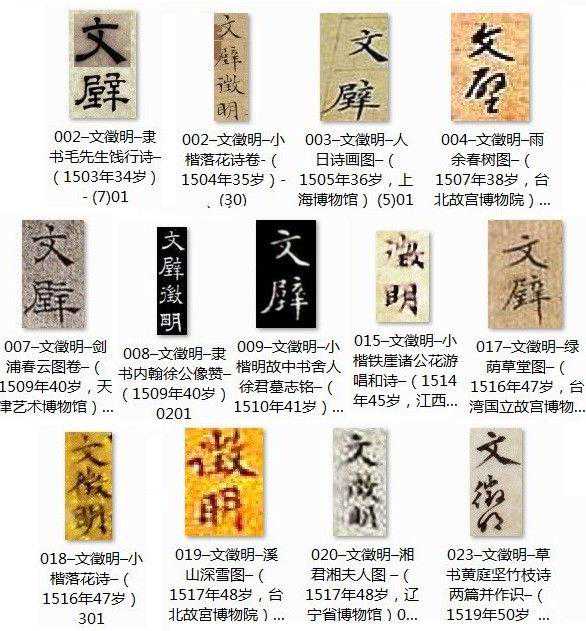 文
壁
002–文徵明–隶
书毛先生饯行诗–
（1503年34岁）
- (7)01
文
壁
徵
明
002–文徵明–小
楷落花诗卷-（
1504年35岁）-
、(30)
文
壁
003–文徵明–人
日诗画图–（
1505年36岁，上
海博物馆） (5)01
文
壁
004–文徵明–雨
余春树图–（
1507年38岁，台
北故宫博物院）...
文
壁
007–文徵明–剑
浦春云图卷–（
1509年40岁，天
津艺术博物馆）...
文
壁
徵
明
008–文徵明–隶
书内翰徐公像赞–
（1509年40岁）
0201
文
壁
009–文徵明–小
楷明故中书舍人
徐君墓志铭–（
1510年41岁）...
徵
明
015–文徵明–小
楷铁崖诸公花游
唱和诗–（1514
年45岁，江西...
文
壁
017–文徵明–绿
荫草堂图–（
1516年47岁，台
湾国立故宫博物...
文
徵
明
018–文徵明–小
楷落花诗–（
1516年47岁）
301
徵
明
019–文徵明–溪
山深雪图–（
1517年48岁，台
北故宫博物院）...
文
徵
明
020–文徵明–湘
君湘夫人图 –（
1517年48岁，辽
宁省博物馆）0...
文
徵
明
023–文徵明–草
书黄庭坚竹枝诗
两篇并作识–（
1519年50岁 ...